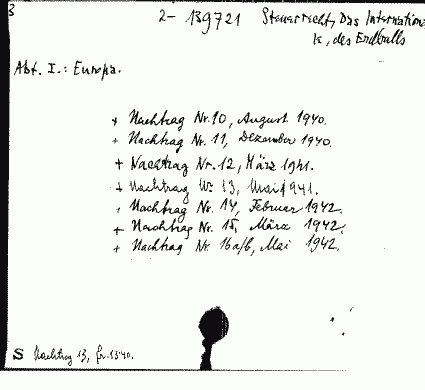 3
2- 139721 Steuerrecht, Das Internationa
le, des Erdballs
Abt. I.: Europa.
+ Nachtrag Nr. 10, August 1940.
+ Nachtrag Nr. 11, Dezember 1940.
+ Nachtrag Nr. 12, März 1941.
+ Nachtrag Nr. 13, Mai 1941.
+ Nachtrag Nr. 14, Februar 1942.
+ Nachtrag Nr. 15, März 1942.
+ Nachtrag Nr. 16a/b, Mai 1942.
S Nachtrag 13, fr. 1340.